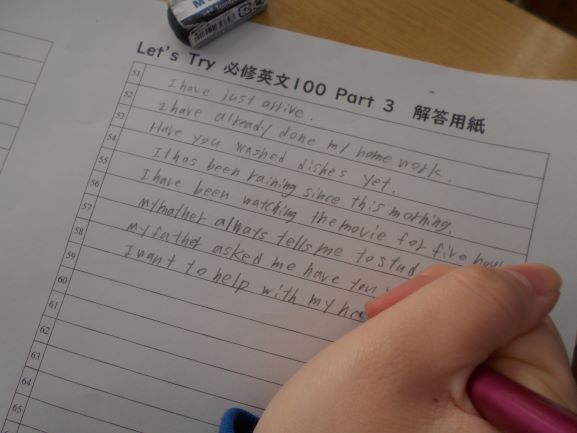 Let's Try 必修英文100 Part 3 解答用紙
51 I have just arrive.
52 I have already done my home work.
53 Have you washed dishes yet.
54 It has been raining since this morning.
55 I have been watching the movie for five
56 My mother always tells me to
57 My father asked me have you
58 I want to help with my
59
60
61
62
63
64
65